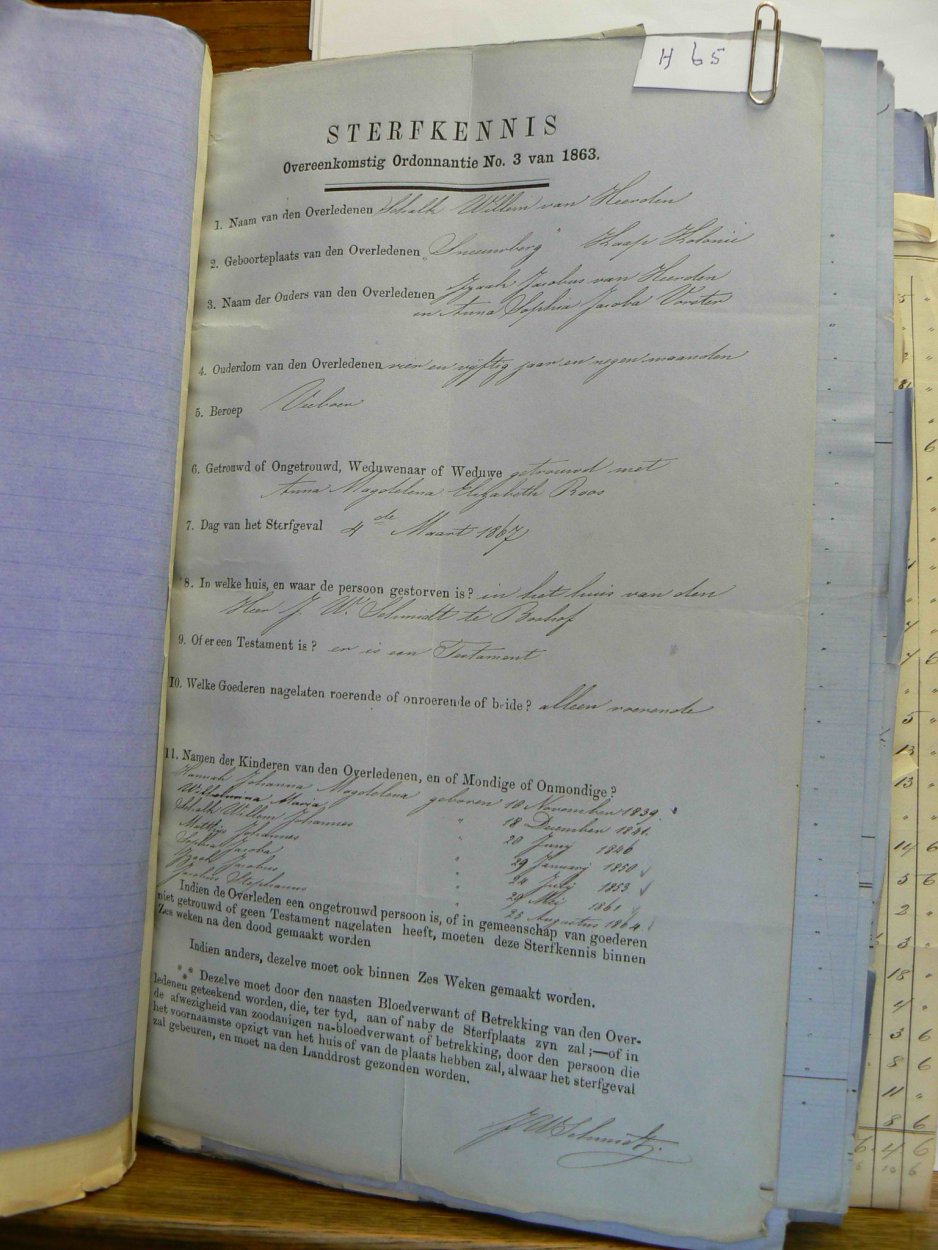 H 65
STERFKENNIS
Overeenkomstig Ordonnantie No. 3 van 1863.
1. Naam van den Overledenen Schalk Willem van Heerden
2. Geboorteplaats van den Overledenen "Sneeuwberg" Kaap Kolonie
3. Naam der Ouders van den Overledenen Izaak Jacobus van Heerden
en Anna Sophia Jacoba Vorster
4. Ouderdom van den Overledenen vier en vyftig jaar en negen maanden
5. Beroep Veeboer
6. Getrouwd of Ongetrouwd, Weduwenaar of Weduwe getrouwd met
Anna Magdelena Elizabeth Roos
7. Dag van het Sterfgeval 4de Maart 1867
8. In welke huis, en waar de persoon gestorven is? in het huis van den
Heer J. W. Schmidt te Boshof
9. Of er een Testament is? er is een Testament
10. Welke Goederen nagelaten roerende of onroerende of beide? alleen roerende
11. Namen der Kinderen van den Overledenen, en of Mondige of Onmondige?
Hannah Johanna Magdelena geboren 10 November 1839
Wilhelmina Maria " 18 December 1841
Schalk Willem Johannes " 20 Juny 1846
Matthys Johannes " 29 January 1850
Sophia Jacoba " 24 July 1853
Izaak Jacobus " 29 Mei 1861
Jacobus Stephanus " 23 Augustus 1864
Indien de Overleden een ongetrouwd persoon is, of in gemeenschap van goederen
niet getrouwd of geen Testament nagelaten heeft, moeten deze Sterfkennis binnen
Zes weken na den dood gemaakt worden
Indien anders, dezelve moet ook binnen Zes Weken gemaakt worden.
⁂ Dezelve moet door den naasten Bloedverwant of Betrekking van den Over-
ledenen geteekend worden, die, ter tyd, aan of naby de Sterfplaats zyn zal;—of in
de afwezigheid van zoodanigen na-bloedverwant of betrekking, door den persoon die
het voornaamste opzigt van het huis of van de plaats hebben zal, alwaar het sterfgeval
zal gebeuren, en moet na den Landdrost gezonden worden.
J W Schmidt